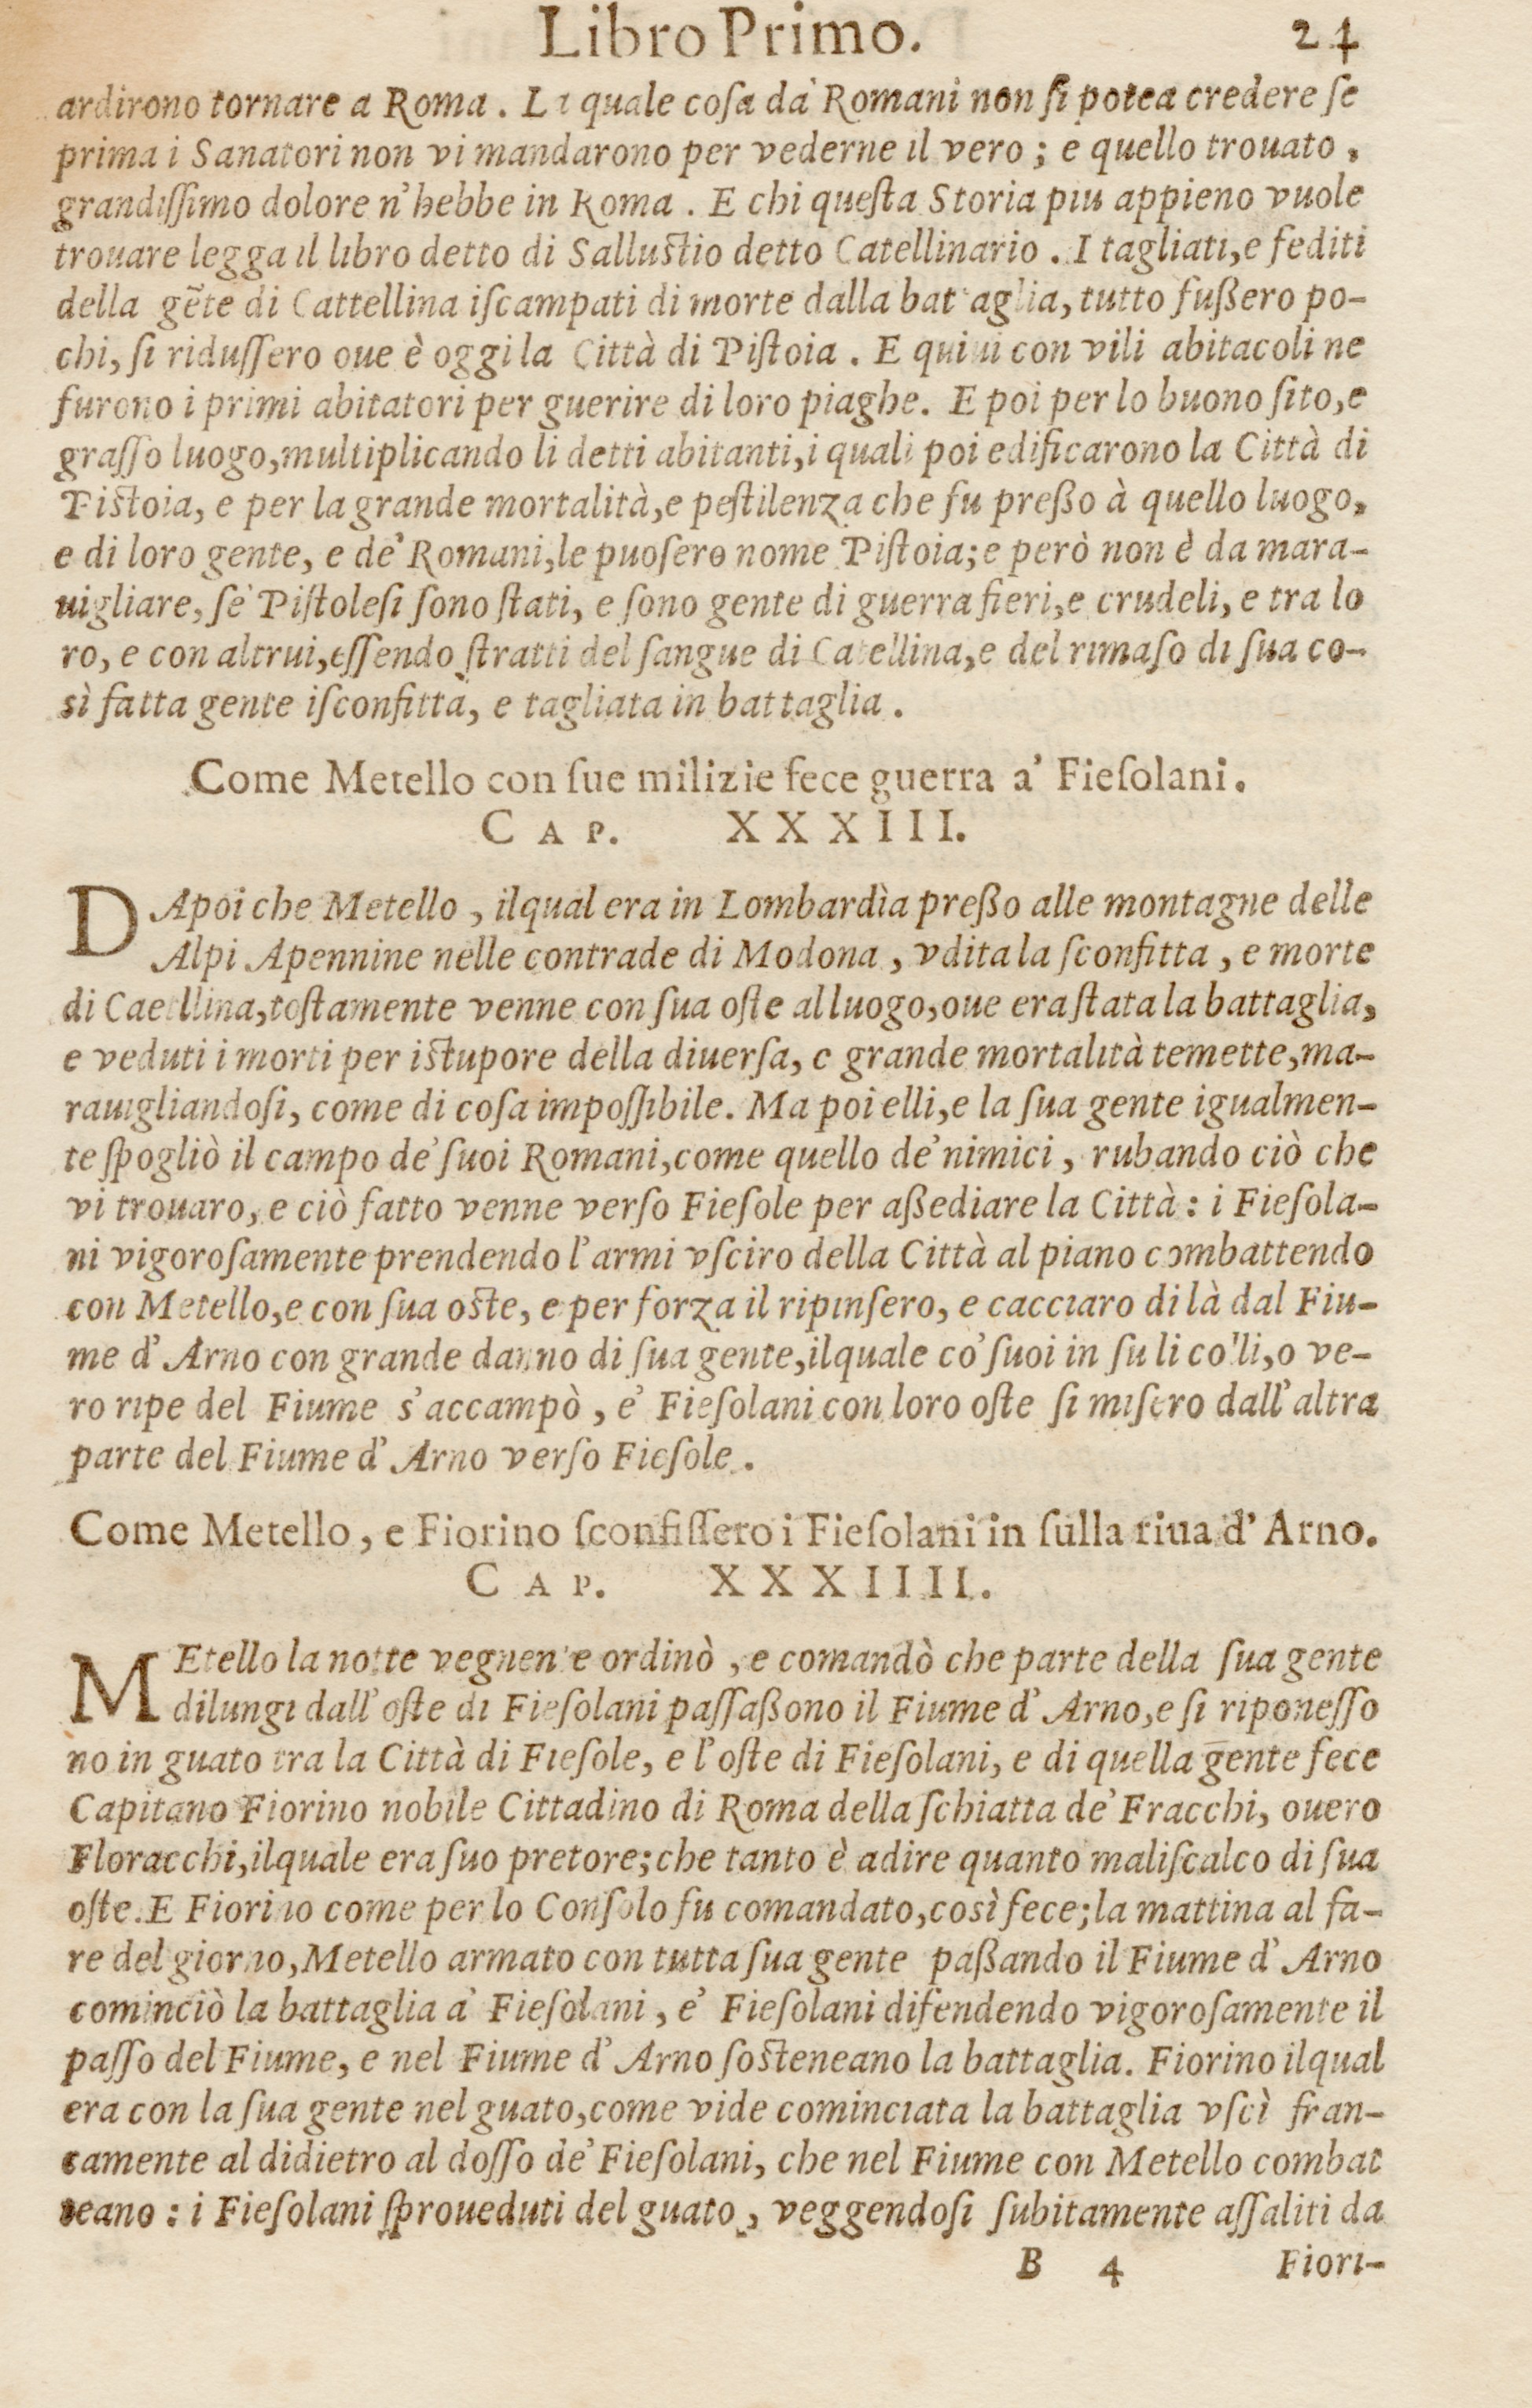 Libro Primo. 24
ardirono tornare a Roma. La quale coſa da' Romani non ſi potea credere ſe
prima i Sanatori non vi mandarono per vederne il vero; e quello trouato,
grandiſſimo dolore n'hebbe in Roma. E chi queſta Storia piu appieno vuole
trouare legga il libro detto di Salluſtio detto Catellinario. I tagliati, e fediti
della gēte di Cattellina iſcampati di morte dalla battaglia, tutto fußero po-
chi, ſi riduſſero oue è oggi la Città di Piſtoia. E quiui con vili abitacoli ne
furono i primi abitatori per guerire di loro piaghe. E poi per lo buono ſito, e
graſſo luogo, multiplicando li detti abitanti, i quali poi edificarono la Città di
Piſtoia, e per la grande mortalità, e peſtilenza che fu preßo à quello luogo,
e di loro gente, e de' Romani, le puoſero nome Piſtoia; e però non è da mara-
uigliare, ſe' Piſtoleſi ſono ſtati, e ſono gente di guerra fieri, e crudeli, e tra lo
ro, e con altrui, eſſendo ſtratti del ſangue di Catellina, e del rimaſo di ſua co-
sì fatta gente iſconfittà, e tagliata in battaglia.
Come Metello con ſue milizie fece guerra a' Fieſolani.
CAP. XXXIII.
DApoi che Metello, ilqual era in Lombardìa preßo alle montagne delle
Alpi Apennine nelle contrade di Modona, vdita la ſconfitta, e morte
di Caetllina, toſtamente venne con ſua oſte al luogo, oue era ſtata la battaglia,
e veduti i morti per iſtupore della diuerſa, e grande mortalità temette, ma-
rauigliandoſi, come di coſa impoſſibile. Ma poi elli, e la ſua gente igualmen-
te ſpogliò il campo de' ſuoi Romani, come quello de' nimici, rubando ciò che
vi trouaro, e ciò fatto venne verſo Fieſole per aßediare la Città: i Fieſola-
ni vigoroſamente prendendo l'armi vſciro della Città al piano combattendo
con Metello, e con ſua oſte, e per forza il ripinſero, e cacciaro di là dal Fiu-
me d'Arno con grande danno di ſua gente, ilquale co' ſuoi in ſu li colli, o ve-
ro ripe del Fiume s'accampò, e' Fieſolani con loro oſte ſi miſero dall'altra
parte del Fiume d'Arno verſo Fieſole.
Come Metello, e Fiorino ſconfiſſero i Fieſolani in ſulla riua d'Arno.
CAP. XXXIIII.
MEtello la notte vegnente ordinò, e comandò che parte della ſua gente
dilungi dall'oſte di Fieſolani paſſaßono il Fiume d'Arno, e ſi riponeſſo
no in guato tra la Città di Fieſole, e l'oſte di Fieſolani, e di quella gente fece
Capitano Fiorino nobile Cittadino di Roma della ſchiatta de' Fracchi, ouero
Floracchi, ilquale era ſuo pretore; che tanto è adire quanto maliſcalco di ſua
oſte. E Fiorino come per lo Conſolo fu comandato, così fece; la mattina al fa-
re del giorno, Metello armato con tutta ſua gente paßando il Fiume d'Arno
cominciò la battaglia a' Fieſolani, e' Fieſolani difendendo vigoroſamente il
paſſo del Fiume, e nel Fiume d'Arno ſoſteneano la battaglia. Fiorino ilqual
era con la ſua gente nel guato, come vide cominciata la battaglia vſcì fran-
camente al didietro al doſſo de' Fieſolani, che nel Fiume con Metello combat
teano: i Fieſolani ſproueduti del guato, veggendoſi ſubitamente aſſaliti da
B 4 Fiori-